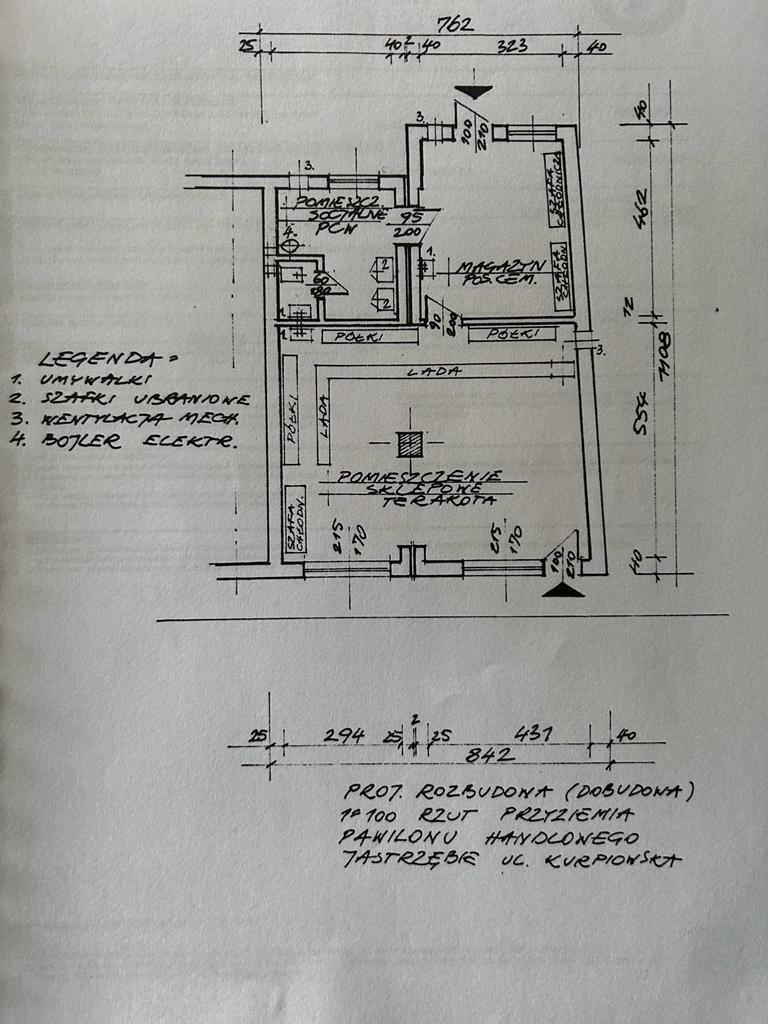 762
25
40
2
40
323
40
3.
100
210
3.
POMIESZCZ.
SOCJALNE
PCW
4.
95
200
SZAFA
CHŁODNICZA
40
462
1.
MAGAZYN
POS. CEM.
SZAFA
CHŁODN.
60
180
2
2
1.
1.
90
200
12
1108
PÓŁKI
PÓŁKI
3.
LADA
LEGENDA:
1. UMYWALKI
2. SZAFKI UBRANIOWE
3. WENTYLACJA MECH.
4. BOJLER ELEKTR.
PÓŁKI
LADA
554
POMIESZCZENIE
SKLEPOWE
TERAKOTA
SZAFA
CHŁODN.
215
170
215
170
100
210
40
25
294
25
2
25
431
40
842
PROJ. ROZBUDOWA (DOBUDOWA)
1:100 RZUT PRZYZIEMIA
PAWILONU HANDLOWEGO
JASTRZĘBIE UL. KURPIOWSKA